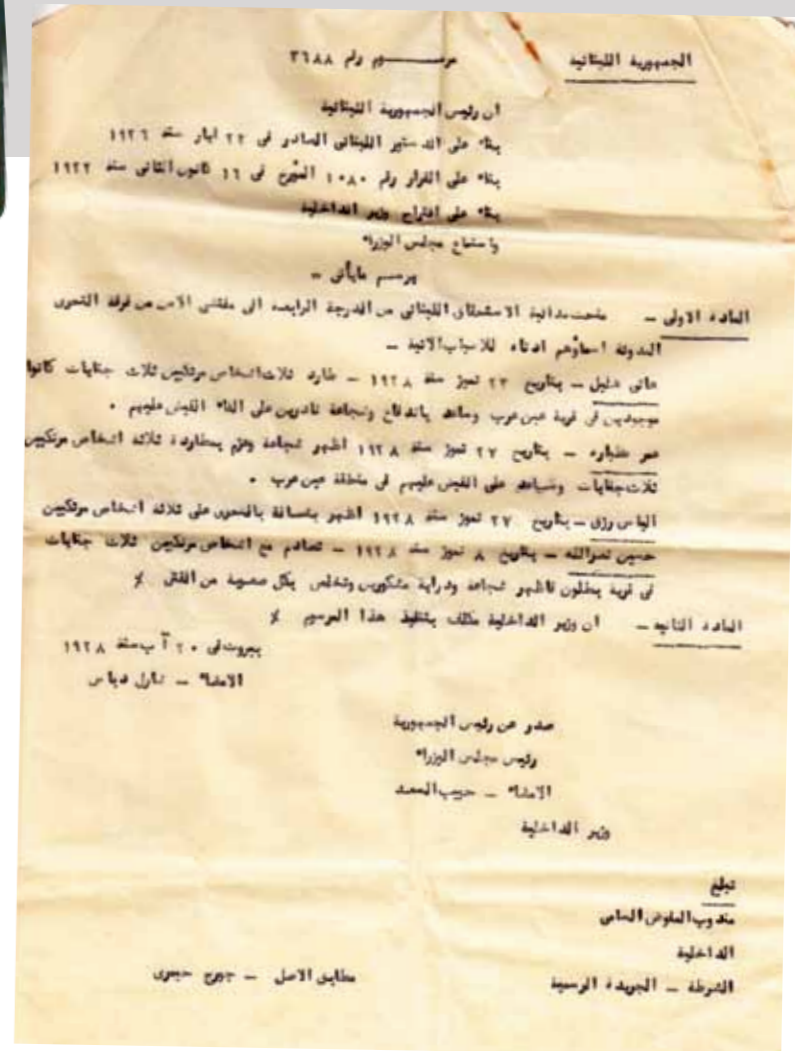 الجمهورية اللبنانية
مرسوم رقم ٣٦٨٨
ان رئيس الجمهورية اللبنانية
بناء على الدستير اللبناني الصادر في ٢٢ ايار سنة ١٩٢٦
بناء على القرار رقم ١٠٨٠ المؤرخ في ١٦ كانون الثاني سنة ١٩٢٢
بناء على اقتراح وزير الداخلية
واستماع مجلس الوزراء
يرسم مايأتي -
المادة الاولى - منحت مدالية الاستحقاق اللبناني من الدرجة الرابعة الى مفتشي الامن من فرقة التحري
المدونة اسماؤهم ادناه للاسباب الاتية -
هاني هليل - بتاريخ ٢٣ تموز سنة ١٩٢٨ - طارد ثلاث اشخاص مرتكبين ثلاث جنايات كانوا
موجودين في قرية عين عرب وساعد باندفاع وشجاعة نادرين على القاء القبض عليهم .
عمر طباره - بتاريخ ٢٧ تموز سنة ١٩٢٨ اظهر شجاعة وعزم بمطاردة ثلاثة اشخاص مرتكبين
ثلاث جنايات وساعد على القبض عليهم في منطقة عين عرب .
الياس رزق - بتاريخ ٢٧ تموز سنة ١٩٢٨ اظهر بسالة بالتحري على ثلاثة اشخاص مرتكبين
حسين نصرالله - بتاريخ ٨ تموز سنة ١٩٢٨ - تصادم مع اشخاص مرتكبين ثلاث جنايات
في قرية بمطلون فاظهر شجاعة ودراية مشكورين وتخلص بكل صعوبة من القتل ٪
المادة الثانية - ان وزير الداخلية مكلف بتنفيذ هذا المرسيم ٪
بيروت في ٢٠ آب سنة ١٩٢٨
الامضاء - شارل دباس
صدر عن رئيس الجمهورية
رئيس مجلس الوزراء
الامضاء - حبيب السعد
وزير الداخلية
تبلغ
مندوب المفوض السامي
الداخلية
الشرطة - الجريدة الرسمية
مطابق الاصل - جورج حيمري